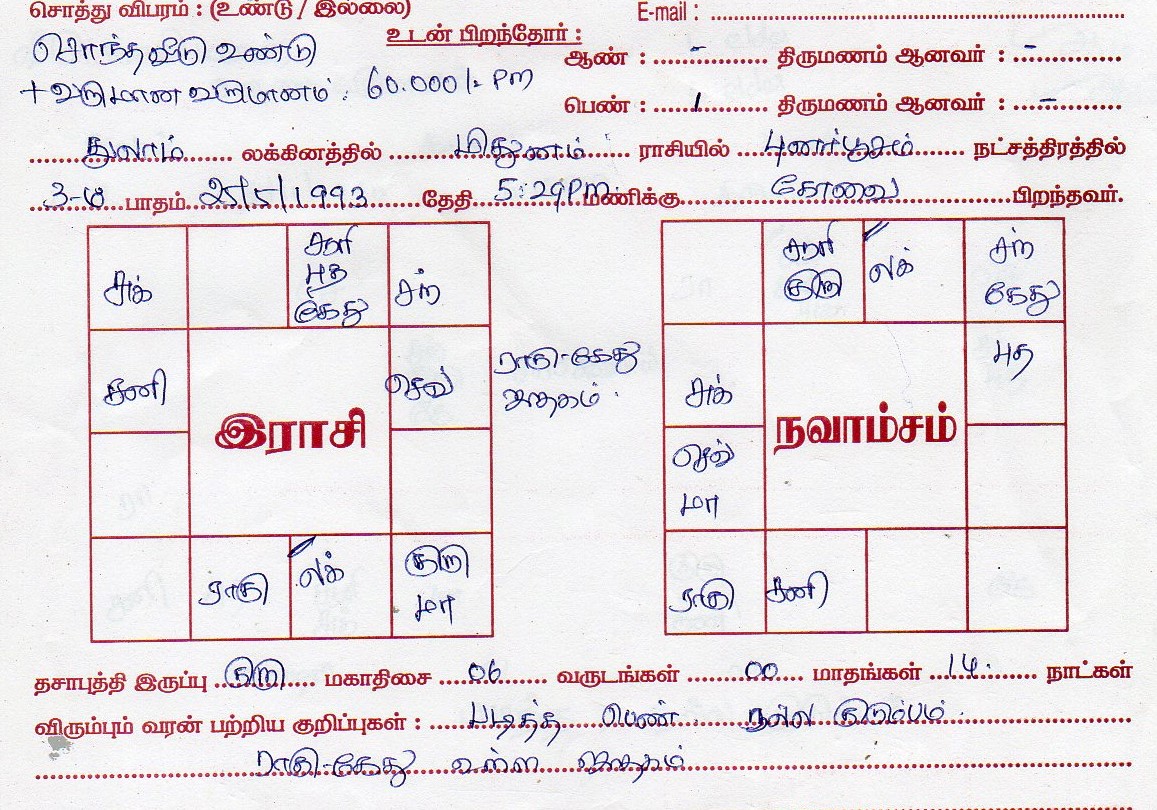 சொத்து விபரம் : (உண்டு / இல்லை) E-mail : ..........
சொந்த வீடு உண்டு
உடன் பிறந்தோர் :
ஆண் : ......-...... திருமணம் ஆனவர் : ..-..........
+ வருமான வருமானம் : 60.000/- PM
பெண் : ......1...... திருமணம் ஆனவர் : ...-.........
துலாம் லக்கினத்தில் மிதுனம் ராசியில் புனர்பூசம் நட்சத்திரத்தில்
3-ம் பாதம் 25/5/1993 தேதி 5:29 PM மணிக்கு கோவை பிறந்தவர்.
சுக்
சூரி
புத
கேது
சந்
சனி
செவ்
இராசி
ராகு
லக்
குரு
மா
ராகு-கேது
ஜாதகம்.
சூரி
குரு
லக்
சந்
கேது
சுக்
புத
நவாம்சம்
செவ்
மா
ராகு
சனி
தசாபுத்தி இருப்பு குரு மகாதிசை 06 வருடங்கள் 00 மாதங்கள் 14 நாட்கள்
விரும்பும் வரன் பற்றிய குறிப்புகள் : படித்த பெண். நல்ல குடும்பம்.
ராகு-கேது உள்ள ஜாதகம்